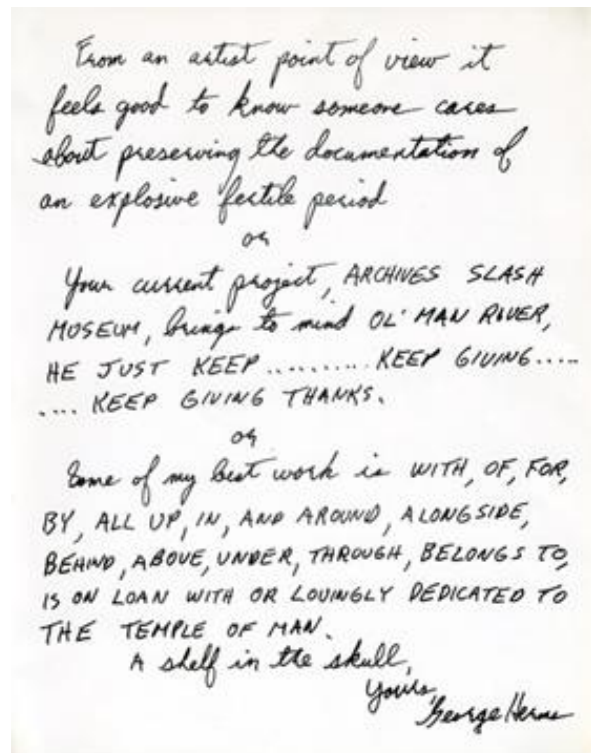 From an artist point of view it
feels good to know someone cares
about preserving the documentation of
an explosive fertile period
or
Your current project, ARCHIVES SLASH
MUSEUM, brings to mind OL' MAN RIVER,
HE JUST KEEP ......... KEEP GIVING.....
.... KEEP GIVING THANKS.
or
Some of my best work is WITH, OF, FOR,
BY, ALL UP, IN, AND AROUND, ALONGSIDE,
BEHIND, ABOVE, UNDER, THROUGH, BELONGS TO,
IS ON LOAN WITH OR LOVINGLY DEDICATED TO
THE TEMPLE OF MAN.
A shelf in the skull,
Yours,
George Herms